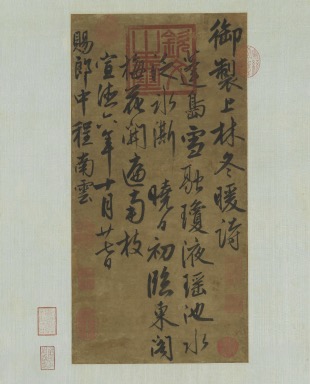 御製上林冬暖詩
蓬島雪融瓊液瑤池水
泛冰澌曉日初臨東閣
梅花開遍南枝
宣德六年十月廿七日
賜郎中程南雲